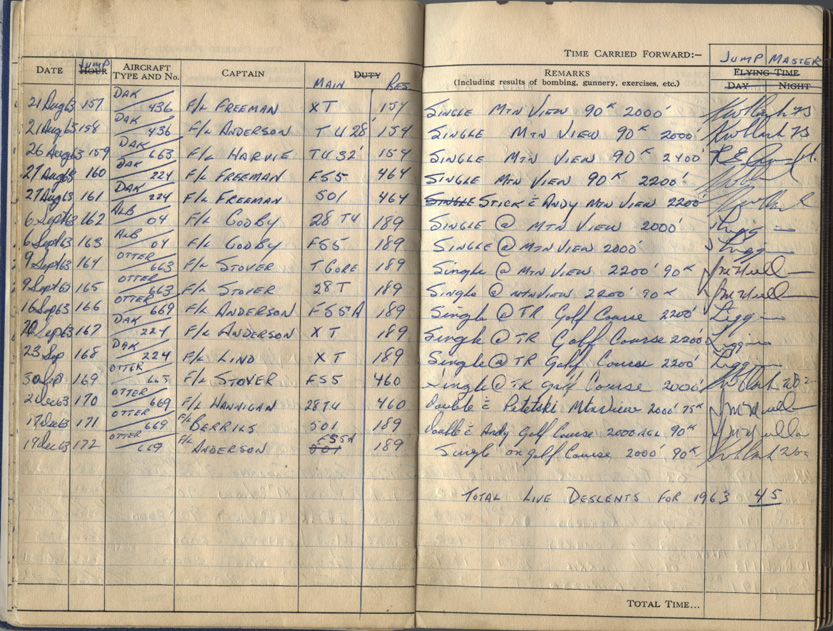 TIME CARRIED FORWARD:-
DATE JUMP HOUR AIRCRAFT TYPE AND No. CAPTAIN MAIN DUTY RES REMARKS (Including results of bombing, gunnery, exercises, etc.) JUMP MASTER FLYING TIME DAY NIGHT
21 Aug 63 157 DAK 436 F/L FREEMAN XT 154 SINGLE MTN VIEW 90K 2000'
21 Aug 63 158 DAK 436 F/L ANDERSON TU 28' 154 SINGLE MTN VIEW 90K 2000'
26 Aug 63 159 DAK 663 F/L HARVIE TU 32' 154 SINGLE MTN VIEW 90K 2400'
27 Aug 63 160 DAK 224 F/L FREEMAN FS5 464 SINGLE MTN VIEW 90K 2200'
27 Aug 63 161 DAK 224 F/L FREEMAN 501 464 SINGLE STICK & ANDY MTN VIEW 2200'
6 Sept 63 162 ALB 04 F/L GODBY 28 TU 189 SINGLE @ MTN VIEW 2000'
6 Sept 63 163 ALB 04 F/L GODBY FS5 189 SINGLE @ MTN VIEW 2000'
9 Sept 63 164 OTTER 663 F/L STOVER T GORE 189 Single @ MTN VIEW 2200' 90K
9 Sept 63 165 OTTER 663 F/L STOVER 28 T 189 Single @ MTN VIEW 2200' 90K
16 Sep 63 166 OTTER 669 F/L ANDERSON FS5A 189 Single @ TR Golf Course 2200'
20 Sep 63 167 DAK 224 F/L ANDERSON XT 189 Single @ TR Golf Course 2200
23 Sep 168 DAK 224 F/L LIND XT 189 Single @ TR Golf Course 2200'
30 Sep 169 OTTER F/L STOVER FS5 460 Single @ TR Golf Course 2000'
2 Dec 63 170 OTTER 669 F/L HANNIGAN 28 TU 460 Double & MTN View 2000' 75K
17 Dec 63 171 OTTER 669 F/L 501 189 Double & Andy Golf Course 2000 AGL 90K
19 Dec 63 172 OTTER 669 F/L ANDERSON FS5A 501 189 Single on Golf Course 2000' 90K
TOTAL LIVE DESCENTS FOR 1963 45
TOTAL TIME...